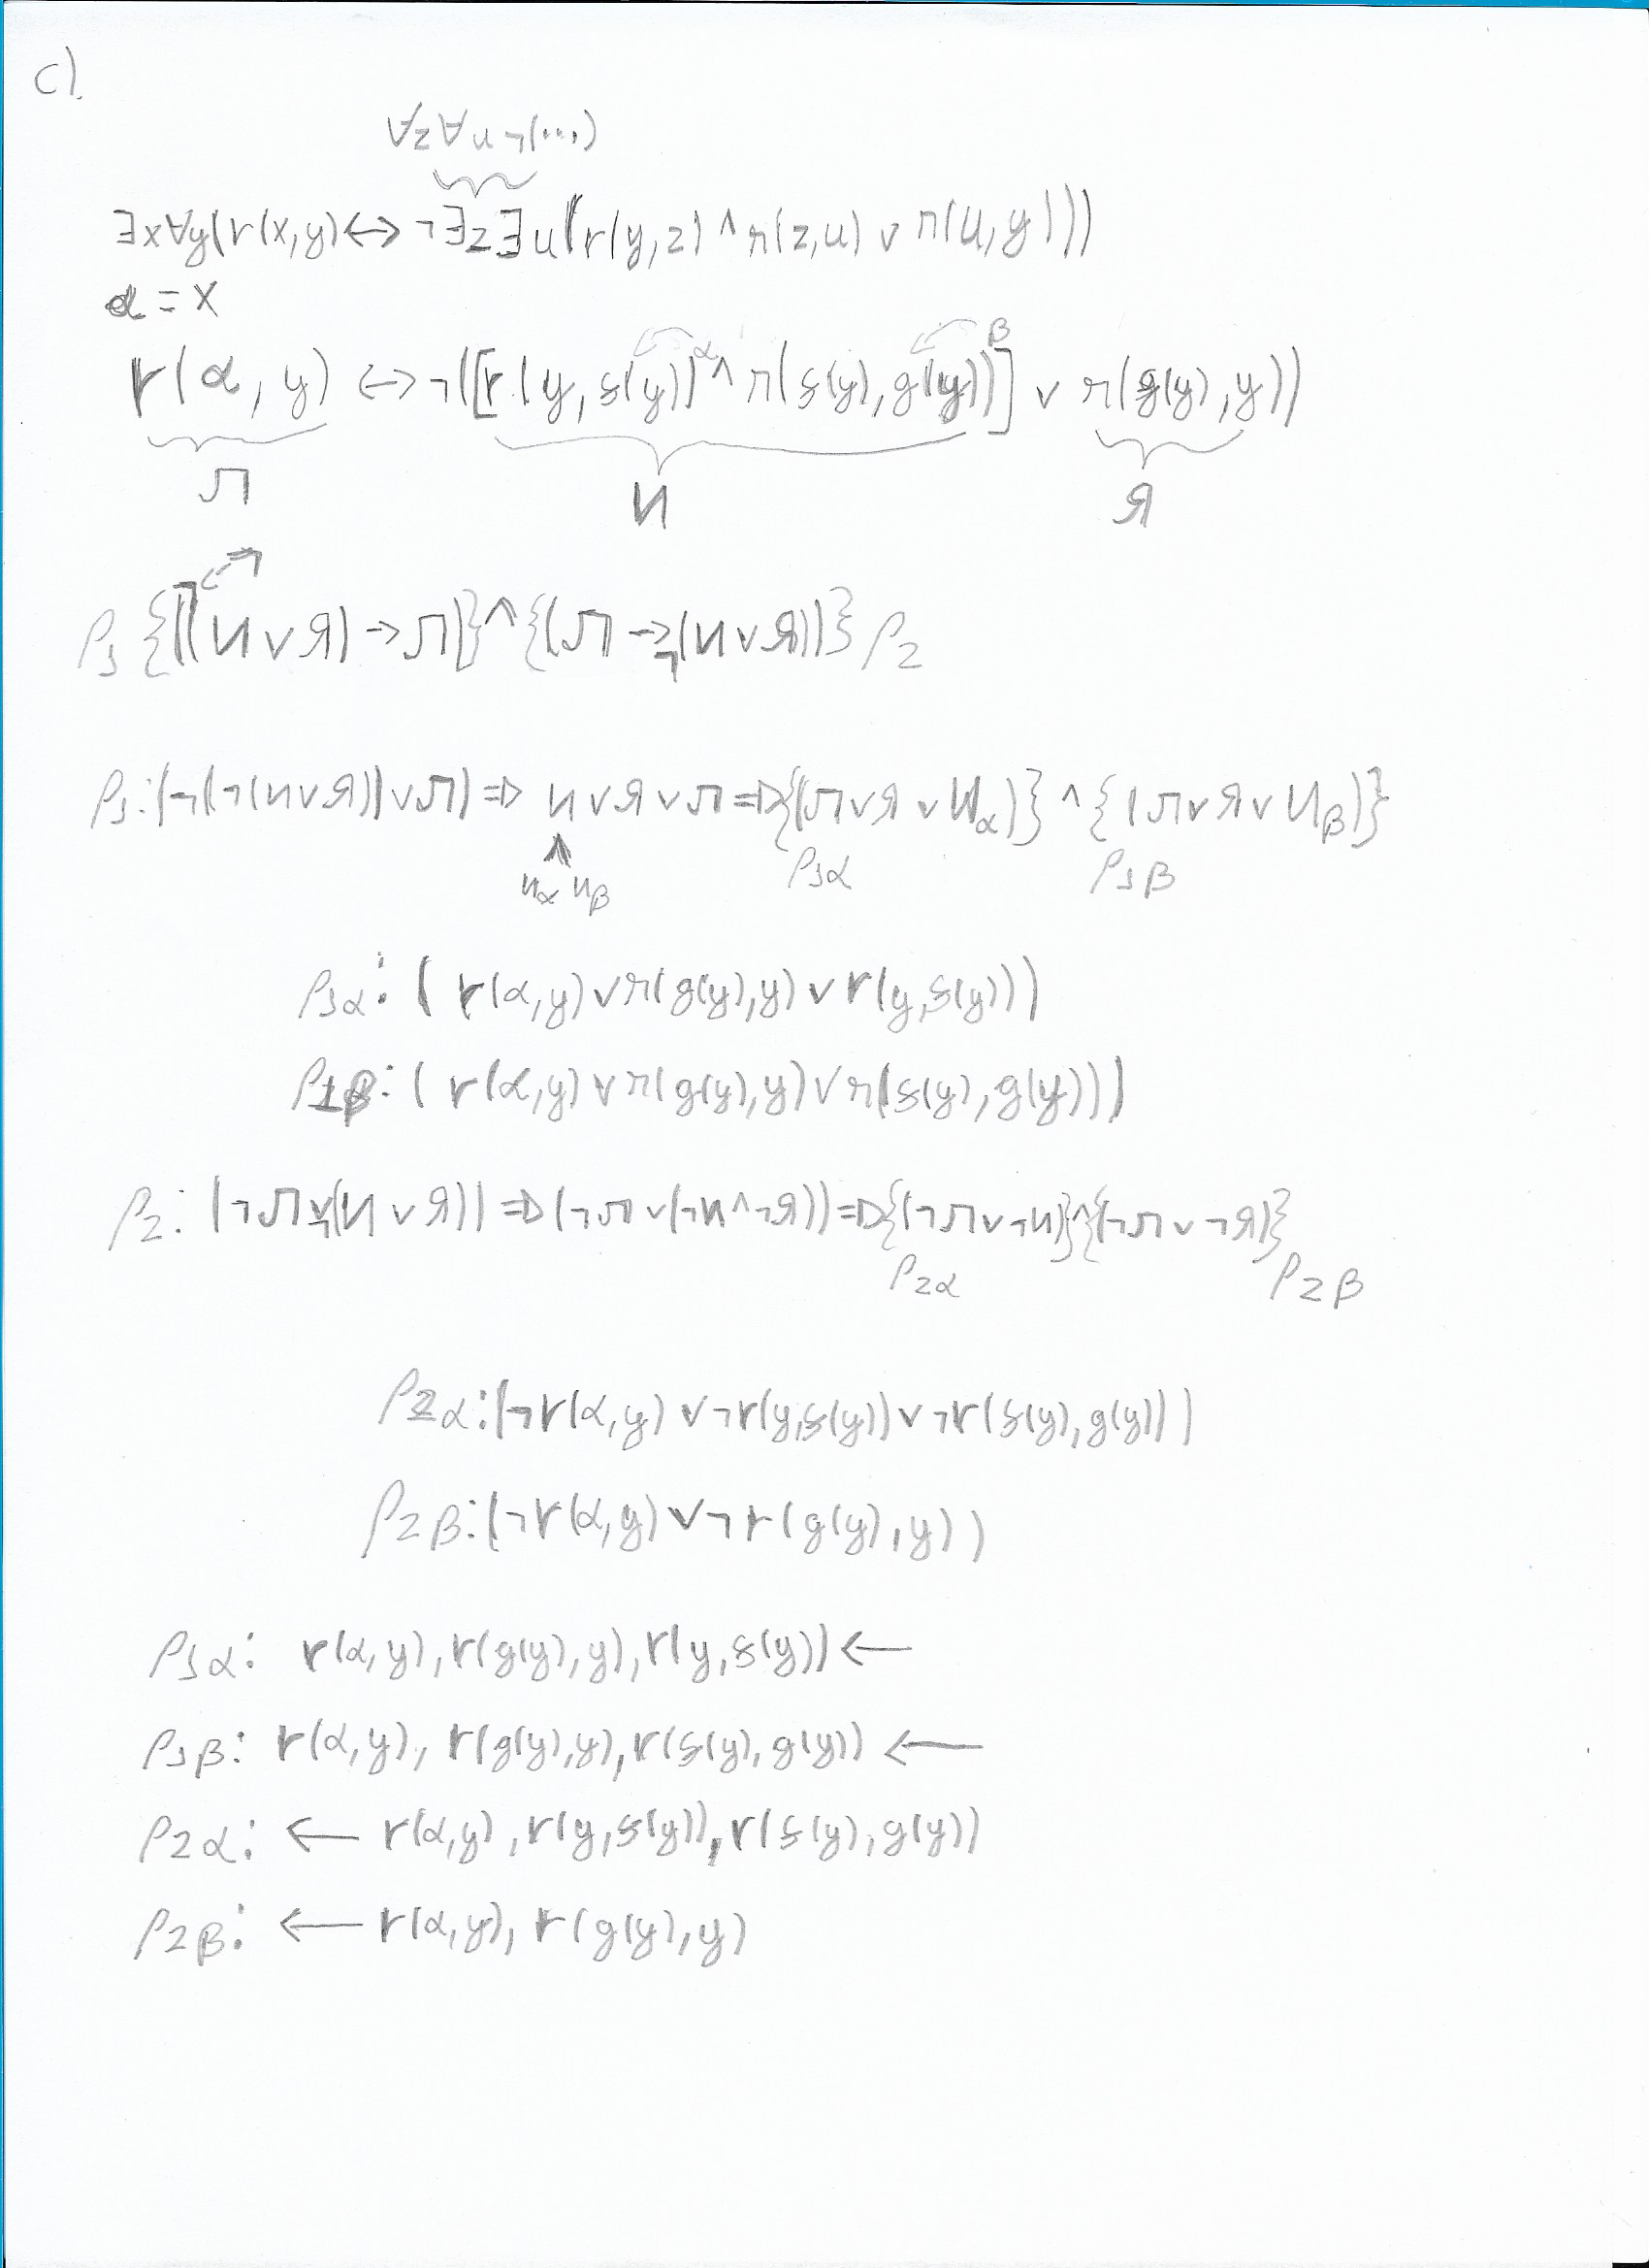 c).
∀z∀u¬(...)
∃x∀y(r(x,y)↔¬∃z∃u(r(y,z)∧r(z,u)∨r(u,y)))
α=x
r(α,y)↔¬([r(y,f(y))^α∧r(f(y),g(y))^β]∨r(g(y),y))
Л И Я
¬
ρ1{(¬(И∨Я)→Л)}∧{(Л→¬(И∨Я))}ρ2
ρ1:(¬(¬(И∨Я))∨Л)⇒И∨Я∨Л⇒{(Л∨Я∨Иα)}∧{(Л∨Я∨Иβ)}
Иα Иβ ρ1α ρ1β
ρ1α:(r(α,y)∨r(g(y),y)∨r(y,f(y)))
ρ1β:(r(α,y)∨r(g(y),y)∨r(f(y),g(y)))
ρ2:(¬Л∨¬(И∨Я))⇒(¬Л∨(¬И∧¬Я))⇒{(¬Л∨¬И)}∧{(¬Л∨¬Я)}
ρ2α ρ2β
ρ2α:(¬r(α,y)∨¬r(y,f(y))∨¬r(f(y),g(y)))
ρ2β:(¬r(α,y)∨¬r(g(y),y))
ρ1α: r(α,y),r(g(y),y),r(y,f(y))←
ρ1β: r(α,y),r(g(y),y),r(f(y),g(y))←
ρ2α: ←r(α,y),r(y,f(y)),r(f(y),g(y))
ρ2β: ←r(α,y),r(g(y),y)